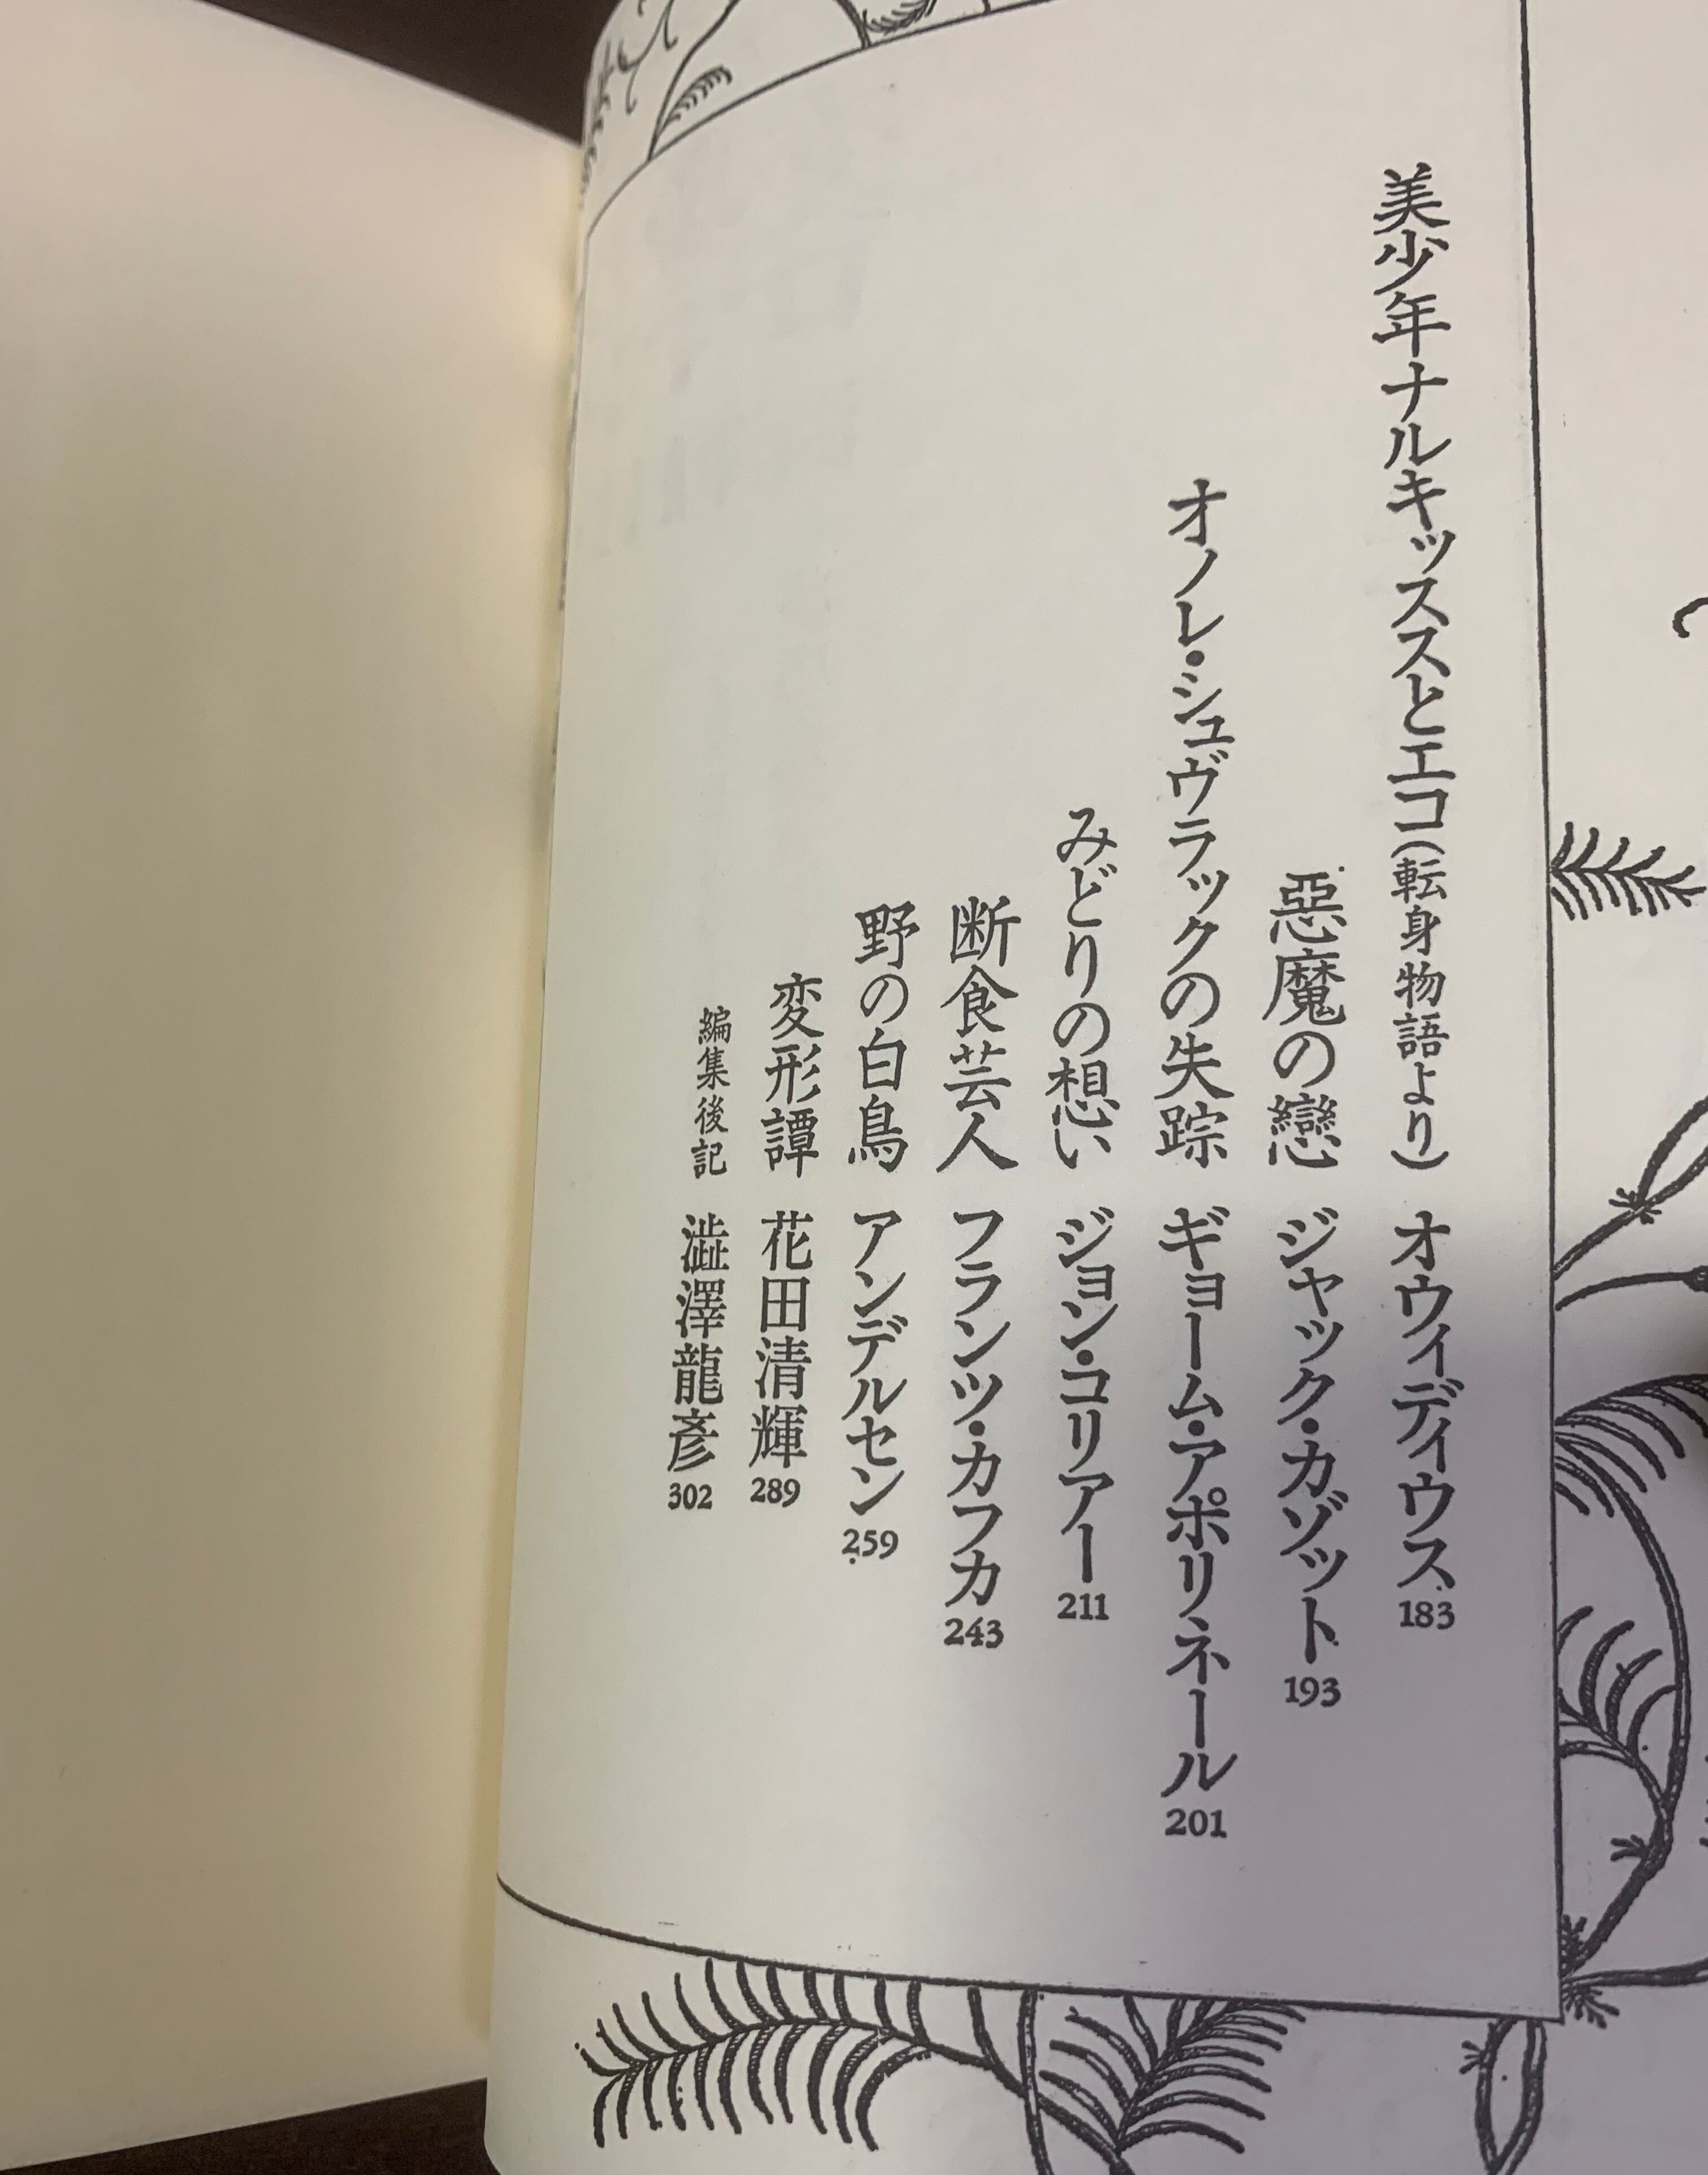 美少年ナルキッススとエコ(転身物語より) オウィディウス 183
惡魔の戀 ジャック・カゾット 193
オノレ・シュヴラックの失踪 ギョーム・アポリネール 201
みどりの想い ジョン・コリアー 211
断食芸人 フランツ・カフカ 243
野の白鳥 アンデルセン 259
変形譚 花田清輝 289
編集後記 澁澤龍彦 302